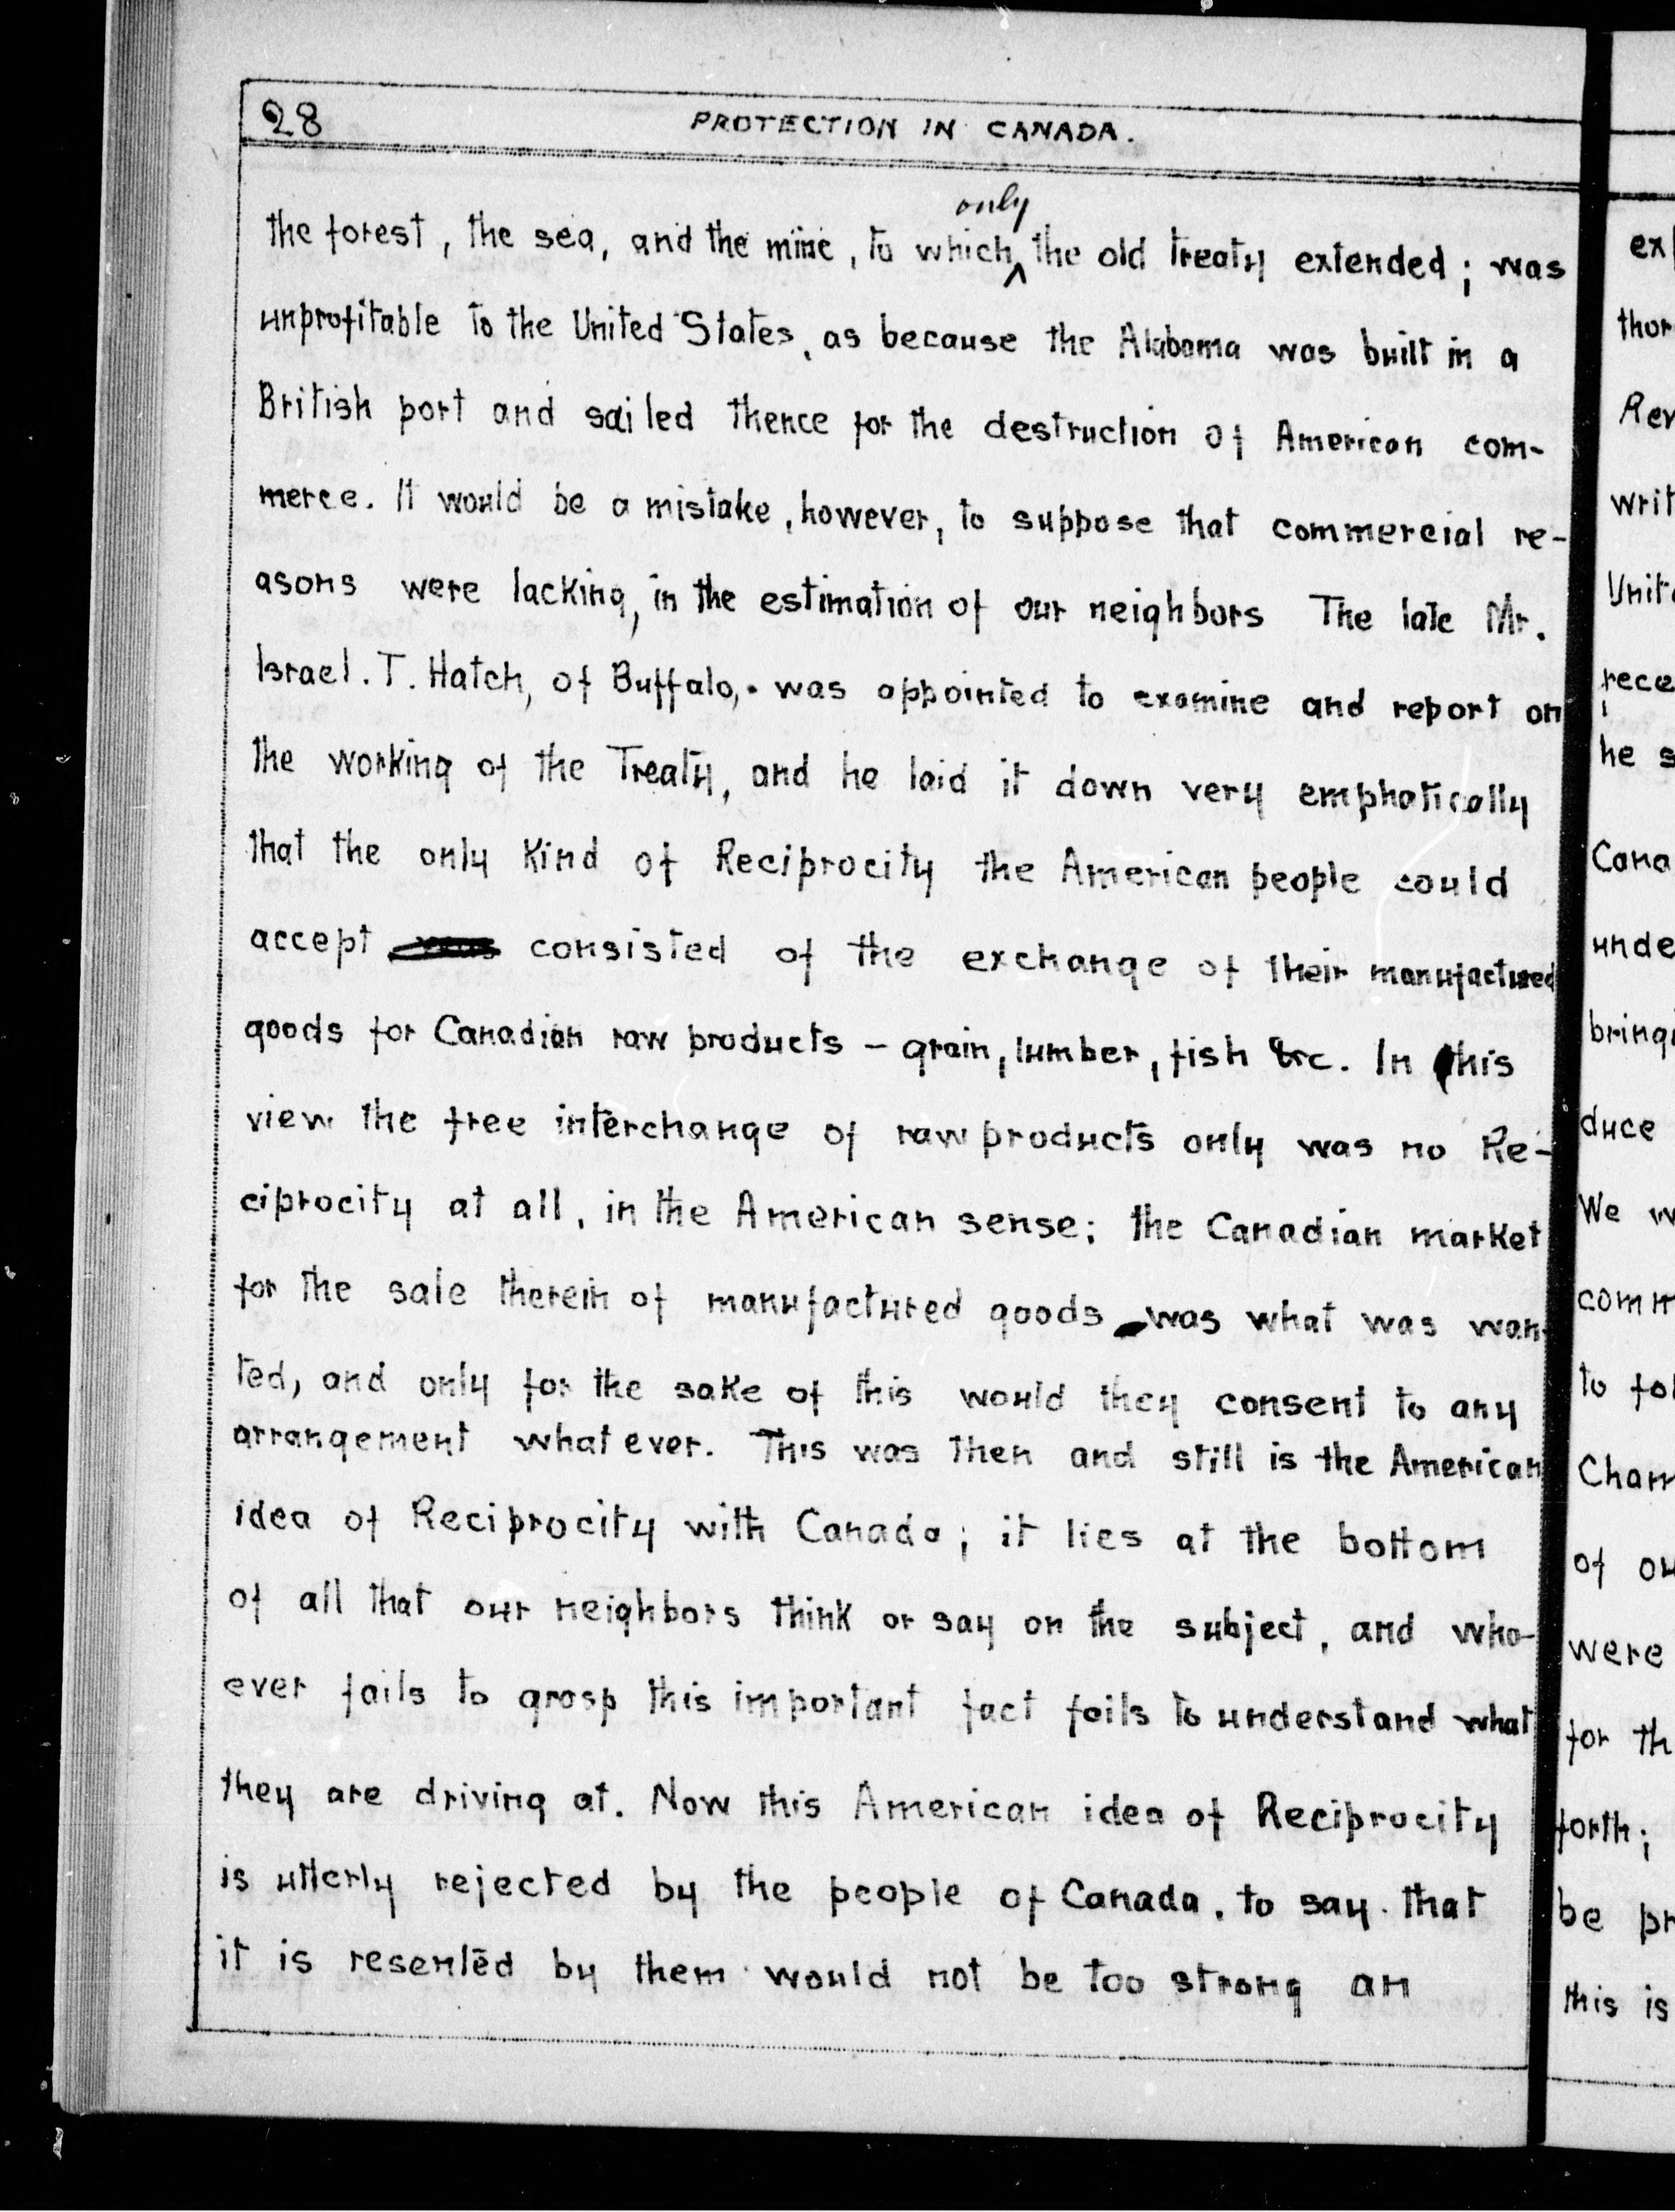 28
PROTECTION IN CANADA.
only
the forest, the sea, and the mine, to which ^ the old treaty extended; was
unprofitable to the United States, as because the Alabama was built in a
British port and sailed thence for the destruction of American com-
merce. It would be a mistake, however, to suppose that commercial re-
asons were lacking, in the estimation of our neighbors The late Mr.
Israel. T. Hatch, of Buffalo, was appointed to examine and report on
the working of the Treaty, and he laid it down very emphatically
that the only kind of Reciprocity the American people could
accept consisted of the exchange of their manufactured
goods for Canadian raw products – grain, lumber, fish &c. In this
view the free interchange of raw products only was no Re-
ciprocity at all, in the American sense; the Canadian market
for the sale therein of manufactured goods was what was wan-
ted, and only for the sake of this would they consent to any
arrangement what ever. This was then and still is the American
idea of Reciprocity with Canada; it lies at the bottom
of all that our neighbors think or say on the subject, and who-
ever fails to grasp this important fact fails to understand what
they are driving at. Now this American idea of Reciprocity
is utterly rejected by the people of Canada, to say that
it is resented by them would not be too strong an
ex
thor
Rev
writ
Unite
rece
he s
Cana
unde
bringi
duce
We w
comm
to fol
Cham
of ou
were
for th
forth;
be pr
this is